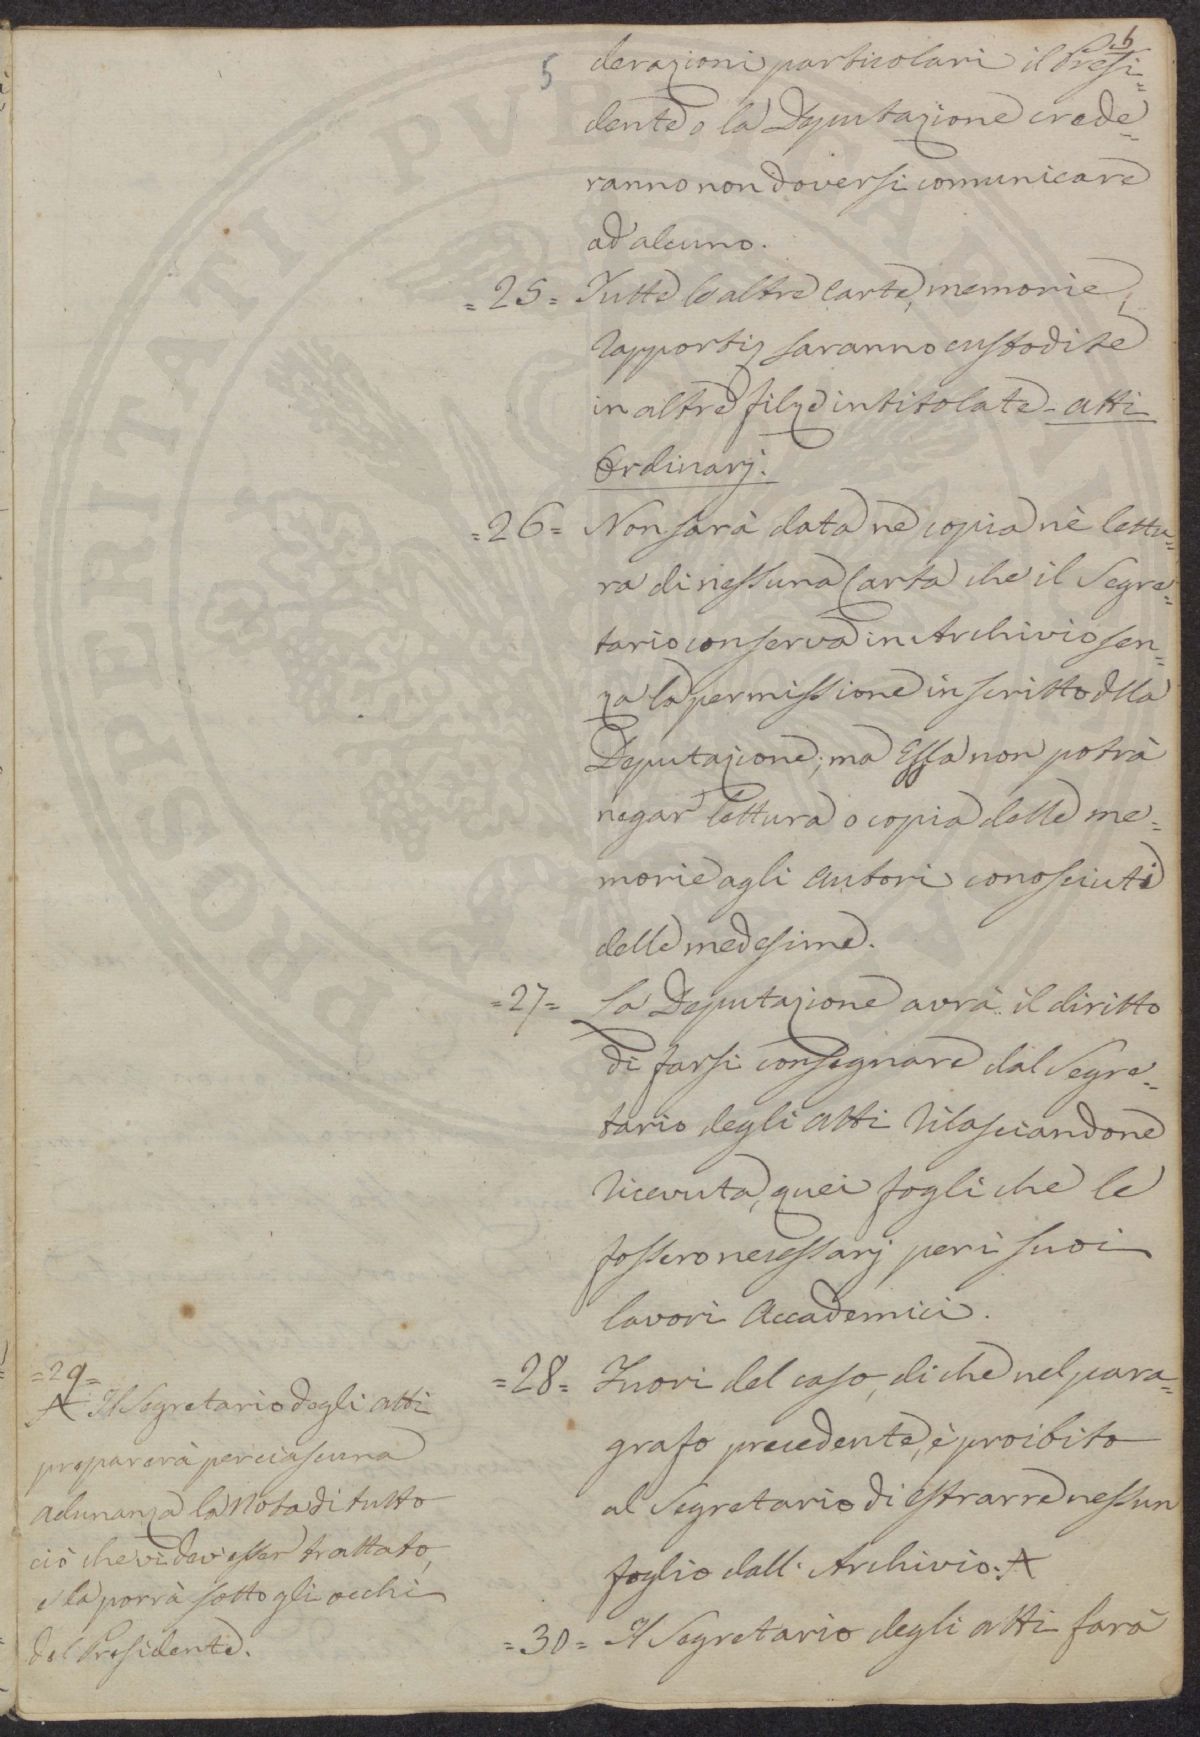 6
5
derazioni particolari il Presi=
dente o la Deputazione crede=
ranno non doversi comunicare
ad alcuno.
=25= Tutte le altre carte, memorie,
rapporti, saranno custodite
in altre filze intitolate - atti
Ordinarj.
=26= Non sarà data nè copia nè lettu=
ra di niessuna Carta che il Segre=
tario conserva in Archivio sen=
za la permissione in scritto della
Deputazione; ma Essa non potrà
negar lettura o copia delle me=
morie agli autori conosciuti
delle medesime.
=27= La Deputazione avrà il diritto
di farsi consegnare dal Segre=
tario degli atti rilasciandone
ricevuta, quei fogli che le
fossero necessarj per i suoi
lavori Accademici.
=28= Fuori del caso, di che nel para=
grafo precedente, è proibito
al Segretario di estrarre nessun
foglio dall'Archivio. A
=29=
A Il Segretario degli atti
preparerà per ciascuna
adunanza la Nota di tutto
ciò che vi dev'esser trattato,
e la porrà sotto gli occhi
del Presidente.
=30= Il Segretario degli atti farà
PROSPERITATI PVBLICAE